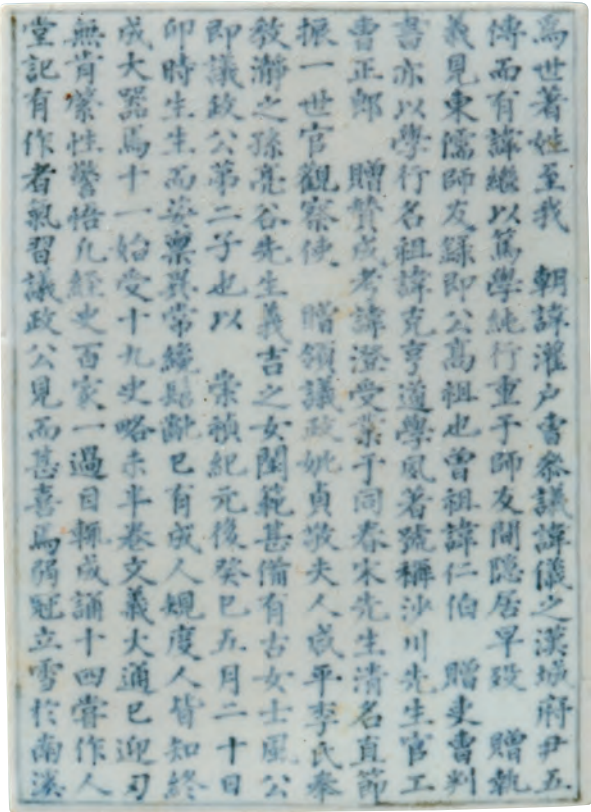 爲世著姓至我　朝諱灌戶曹參議諱儀之漢城府尹五
傳而有諱繼以篤學純行重于師友間隱居早歿　贈執
義見東儒師友錄即公高祖也曾祖諱仁伯　贈吏曹判
書亦以學行名祖諱克亨道學風著號稱沙川先生官工
曹正郎　贈贊成考諱澄受業于同春宋先生清名直節
振一世官觀察使　贈領議政妣貞敬夫人咸平李氏奉
敎瀞之孫亮谷先生義吉之女閨範甚備有古女士風公
即議政公第二子也以　崇禎紀元後癸巳五月二十日
卯時生生而姿禀異常纔髫齔已有成人規度人皆知終
成大器焉十一始受十九史略未半卷文義大通已迎刃
無肯綮性警悟凡經史百家一過目輒成誦十四嘗作人
堂記有作者氣習議政公見而甚喜焉弱冠立雪於南溪